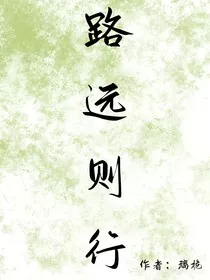 路远则行
作者：瑞艳